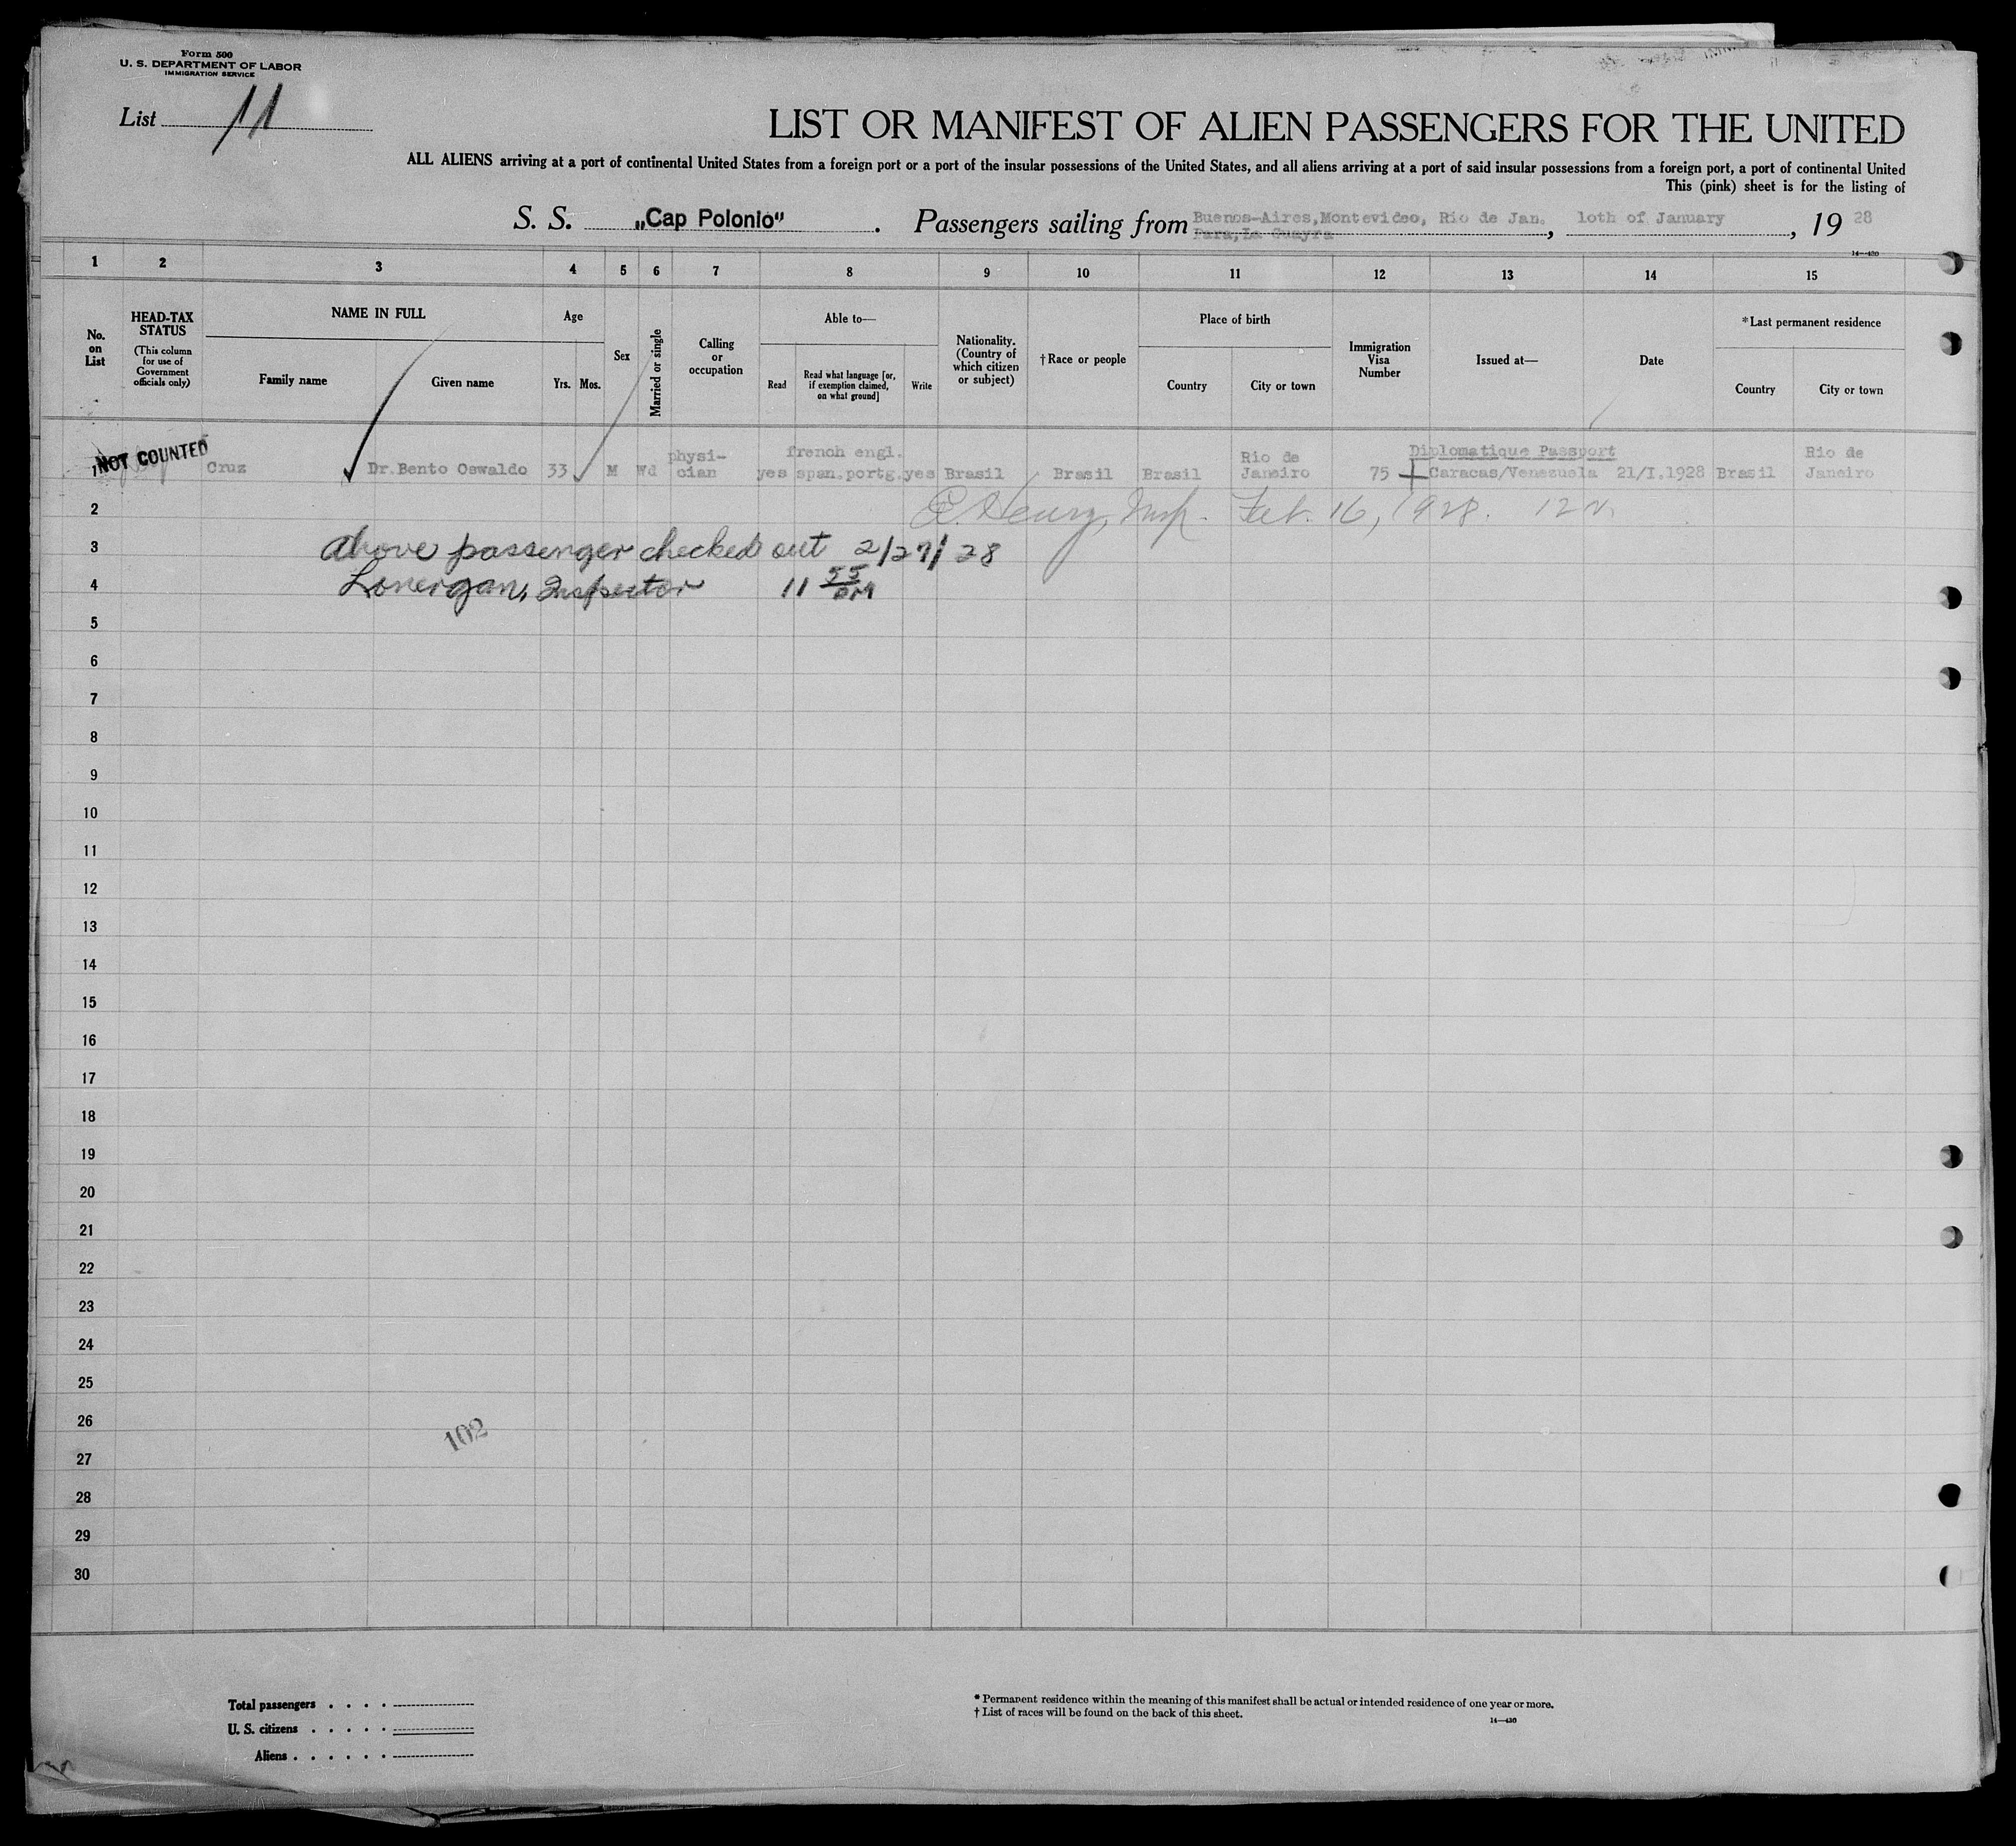 Form 500
U. S. DEPARTMENT OF LABOR
IMMIGRATION SERVICE
List 11
LIST OR MANIFEST OF ALIEN PASSENGERS FOR THE UNITED
ALL ALIENS arriving at a port of continental United States from a foreign port or a port of the insular possessions of the United States, and all aliens arriving at a port of said insular possessions from a foreign port, a port of continental United
This (pink) sheet is for the listing of
S. S. „Cap Polonio" . Passengers sailing from Buenos-Aires, Montevideo, Rio de Jan. , 1oth of January , 19 28
Para, La Guayra
14—430
1 2 3 4 5 6 7 8 9 10 11 12 13 14 15
No. on List
HEAD-TAX STATUS
(This column for use of Government officials only)
NAME IN FULL
Family name
Given name
Age
Yrs. Mos.
Sex
Married or single
Calling or occupation
Able to—
Read
Read what language [or, if exemption claimed, on what ground]
Write
Nationality. (Country of which citizen or subject)
†Race or people
Place of birth
Country
City or town
Immigration Visa Number
Issued at—
Date
*Last permanent residence
Country
City or town
NOT COUNTED
1 Cruz Dr. Bento Oswaldo 33 M Wd physi-cian yes french engl. span. portg. yes Brasil Brasil Brasil Rio de Janeiro 75 Diplomatique Passport Caracas/Venezuela 21/I.1928 Brasil Rio de Janeiro
2 Henry, Insp. Feb. 16, 1928.
3 Above passenger checked out 2/27/28
4 Lonergan, Inspector 11 55 PM
5
6
7
8
9
10
11
12
13
14
15
16
17
18
19
20
21
22
23
24
25
26
102
27
28
29
30
Total passengers . . . .
U. S. citizens . . . . .
Aliens . . . . . .
* Permanent residence within the meaning of this manifest shall be actual or intended residence of one year or more.
† List of races will be found on the back of this sheet.
14—430